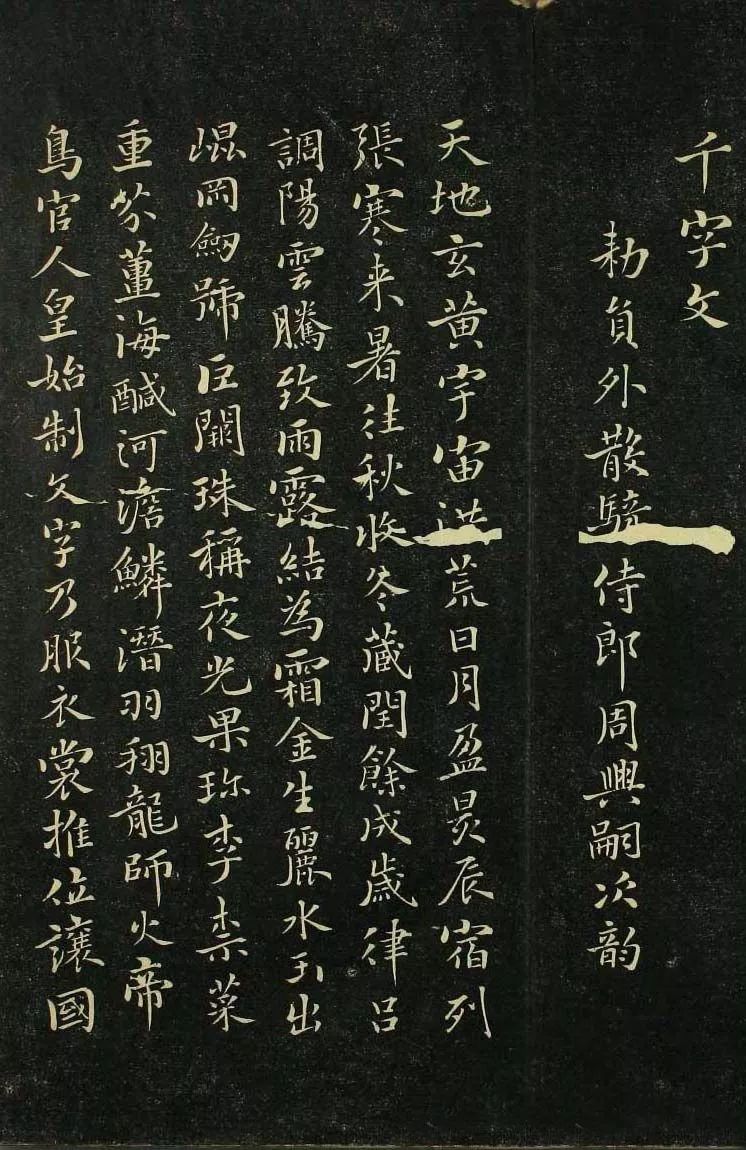 千字文
勑員外散騎侍郎周興嗣次韵
天地玄黄宇宙洪荒日月盈昃辰宿列
張寒来暑往秋收冬藏閏餘成歲律吕
調陽雲騰致雨露結為霜金生麗水玉出
崐岡劒號巨闕珠稱夜光果珎李柰菜
重芥薑海醎河澹鱗潛羽翔龍師火帝
鳥官人皇始制文字乃服衣裳推位讓國